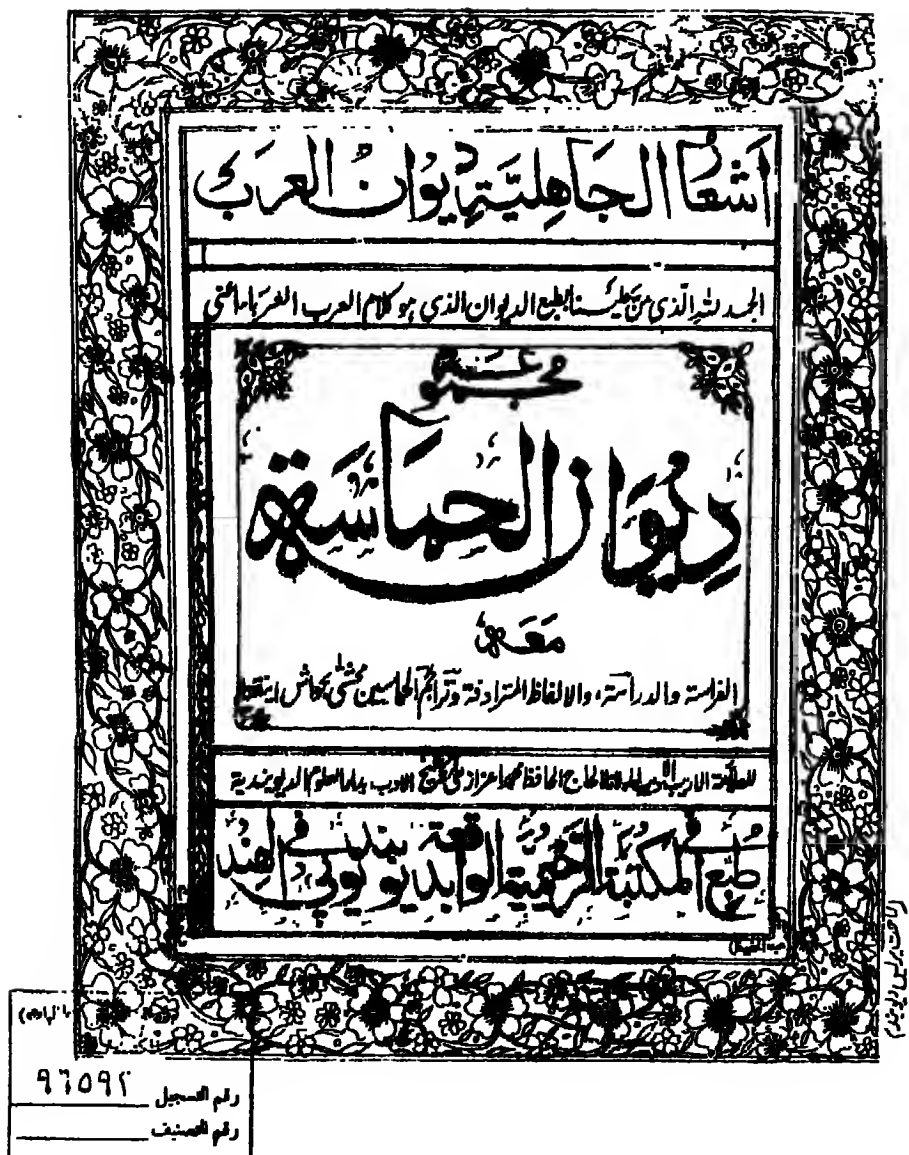 اَشعَارُ الجَاهِلِيَّةِ دِيوَانُ العَرَب
الحمد لله الذى من علينا بطبع الديوان الذى هو كلام العرب العرباء اعنى
مجموعة
دِيوَانُ الحمَاسَة
مَعَه
الفراسة والدراسة، والالفاظ المترادفة وتراجم الحماسيين محشى بحواش
للعلامة الاديب مولانا الحاج الحافظ محمد اعزاز على شيخ الادب بدار العلوم الديوبندية
طُبع في المكتبة الرَّحيمِيَّة الواقعة بديوبند يوپي الهند
رقم التسجيل ٩٦٥٩٢
رقم التصنيف